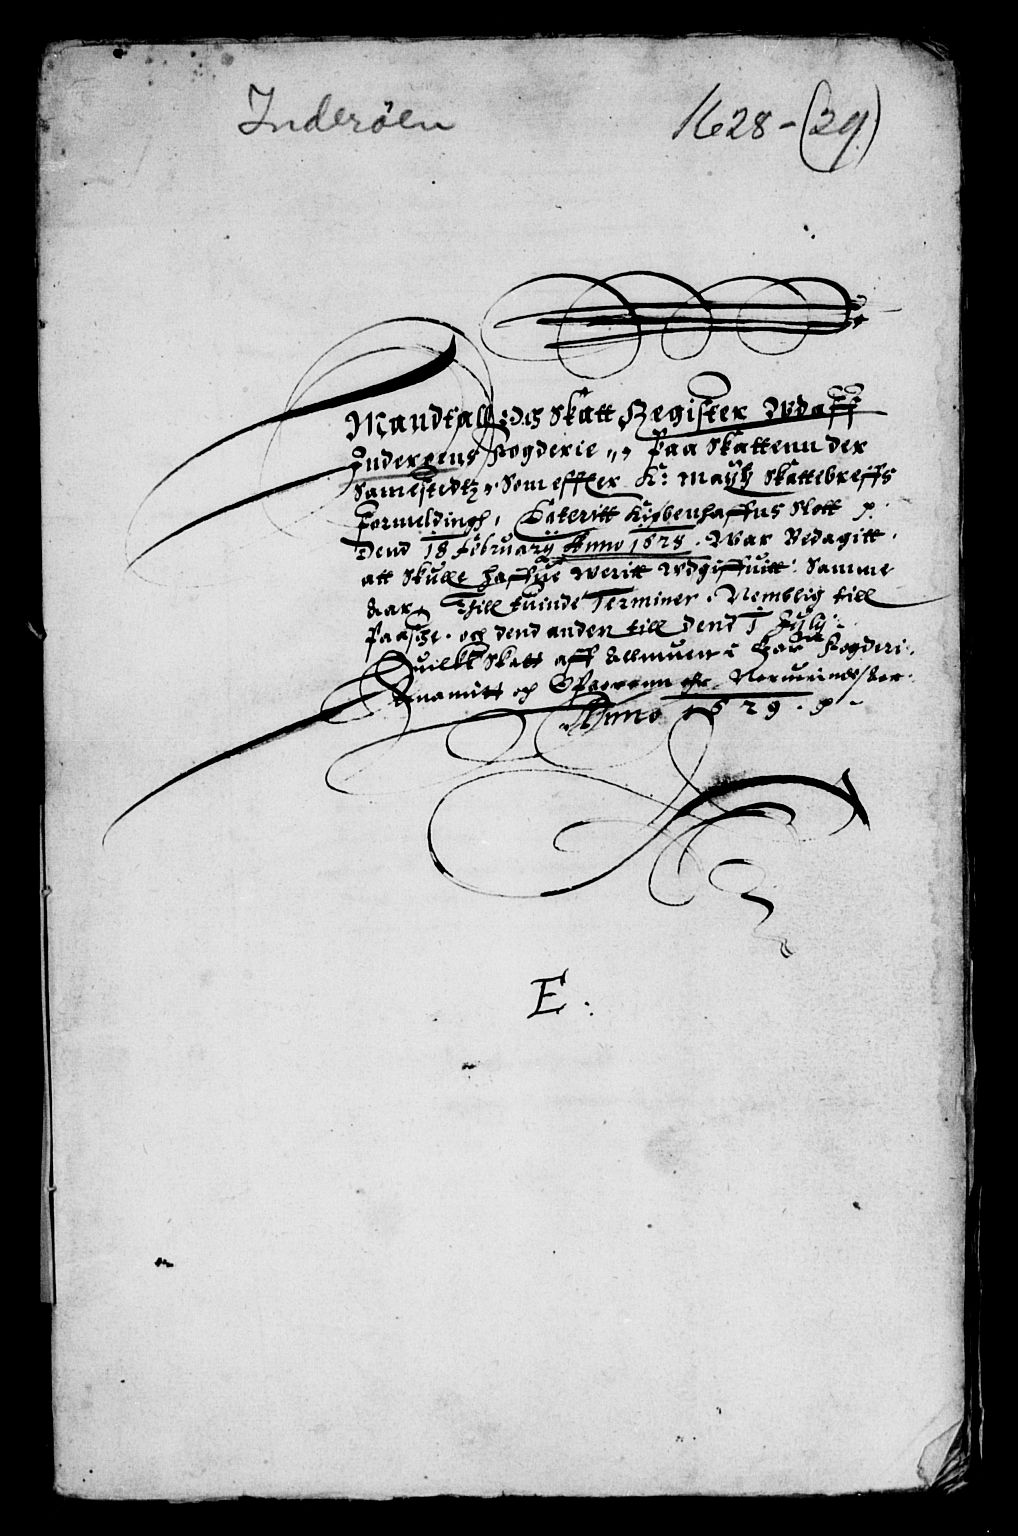 Inderöen 1628-(29)
Mandtall Och Skatt Register Udaff
Inderøens Fogderie „„ Paa Skattenn der
Samestedtz, Som effter K: Maytz Skattebreffs
Formeldingh, Dateritt Kiøbenhaffns Slott p.
Dend 18 February Anno 1628. War Bedagitt.
att Skulle haffue Weritt Udgiffuitt. Samme
Aar, Thill tuinde Terminer. Nemblig till
Paasche. och dend anden till Dend 1 July.
Huilke Skatt aff Allmuen i Fogderi.
och Anno 1629. p.
E.